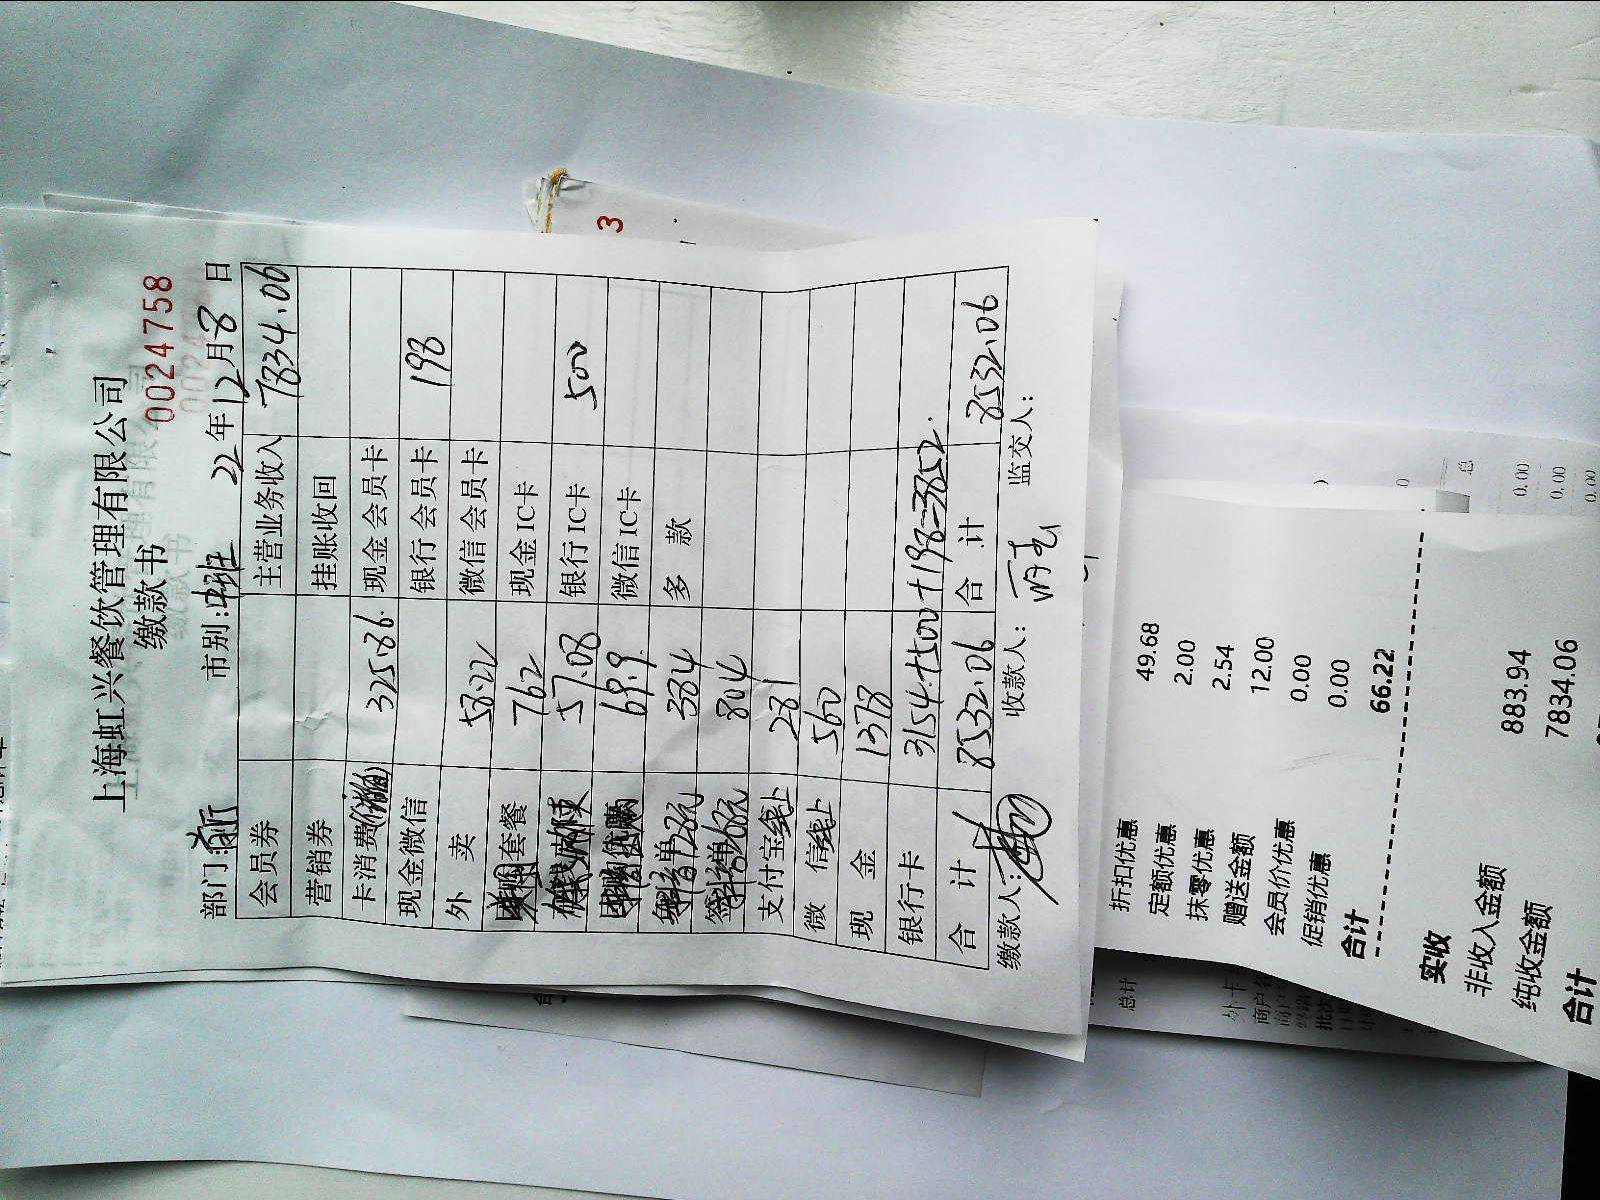 上海虹兴餐饮管理有限公司
缴款书
0024758
部门: 市别:中班 22年12月8日
会员券 主营业务收入 7834.06
营销券 挂账收回
卡消费 325.86 现金会员卡
现金微信 银行会员卡 198
外卖 58.22 微信会员卡
套餐 762 现金IC卡
57.08 银行IC卡 500
69.9 微信IC卡
384 多款
804
支付宝线上 281
微信线上 560
现金 1378
银行卡 3154+500+198=3852
合计 8532.06 合计 8532.06
缴款人: 收款人: 监交人:
3
折扣优惠 49.68
定额优惠 2.00
抹零优惠 2.54
赠送金额 12.00
会员价优惠 0.00
促销优惠 0.00
合计 66.22
实收
非收入金额 883.94
纯收金额 7834.06
合计
总
0.00
0.00
0.00
总计